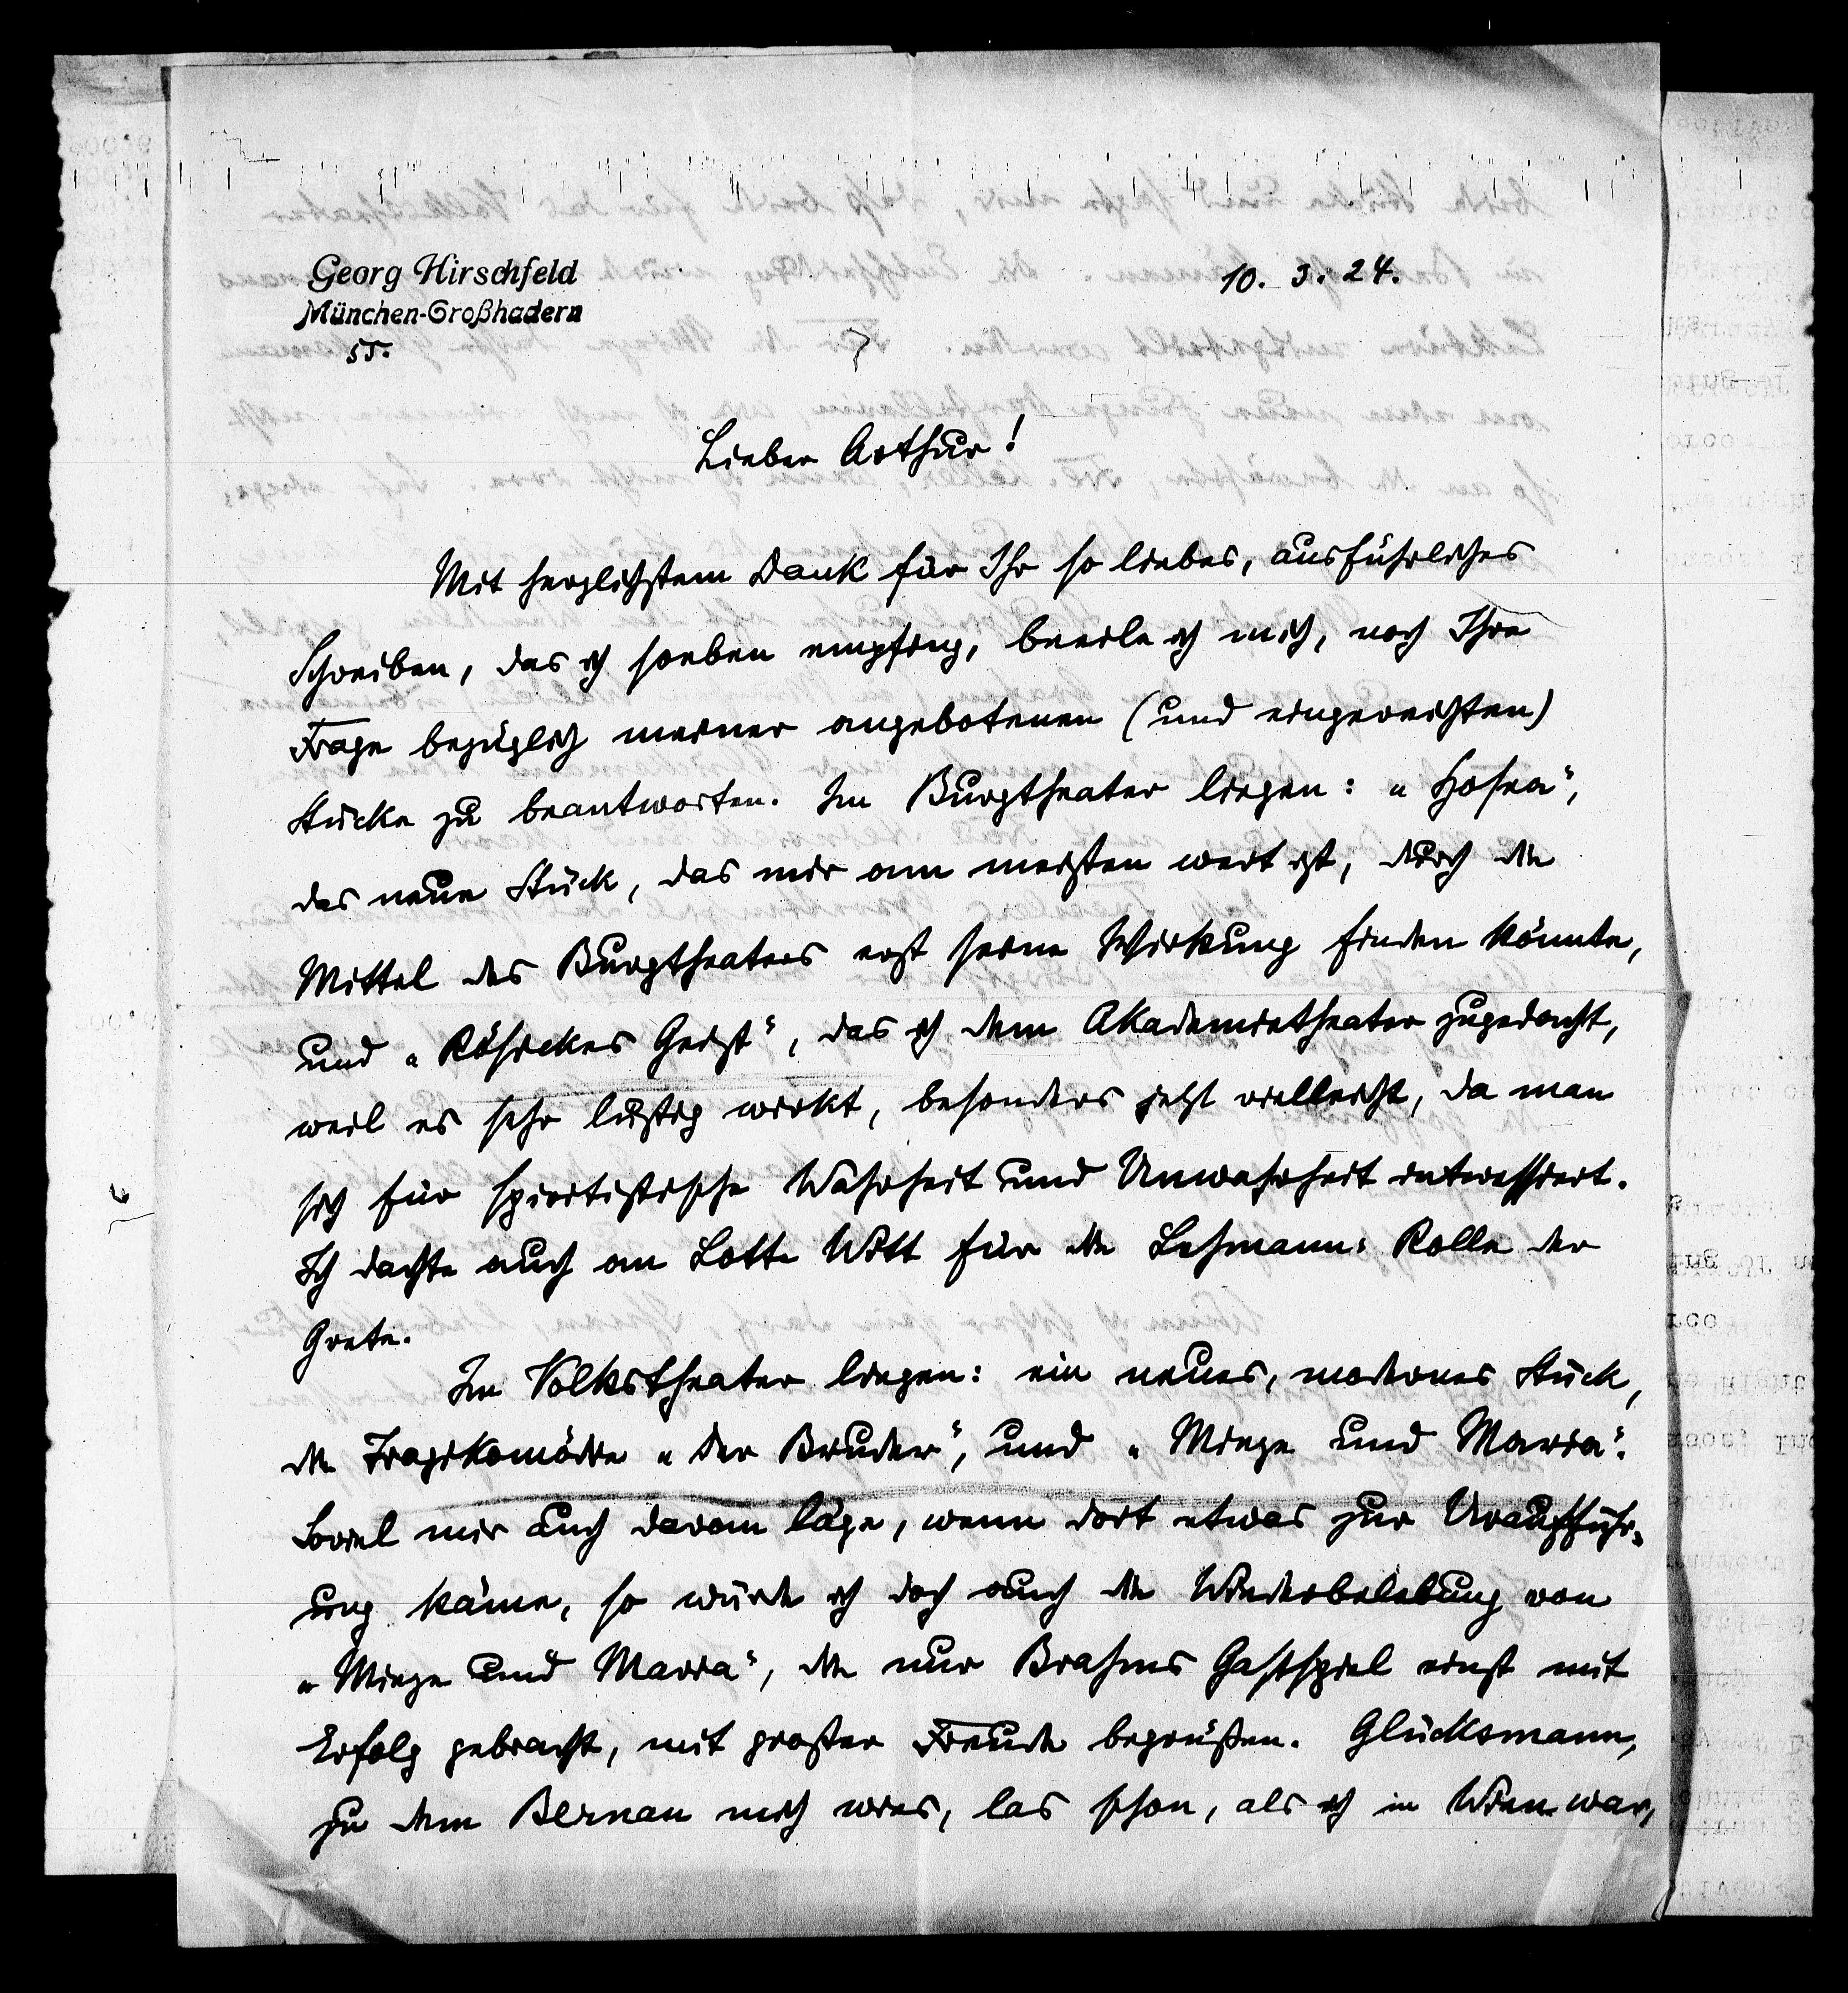 Georg Hirschfeld
München-Großhadern
55.
10. 3. 24.
Lieber Arthur!
Mit herzlichstem Dank für Ihr so liebes, ausführliches
Schreiben, das ich soeben empfing, beeile ich mich, noch Ihre
Frage bezüglich meiner angebotenen (und eingereichten)
Stücke zu beantworten. Im Burgtheater liegen: „Hosea“,
das neue Stück, das mir am meisten wert ist, durch die
Mittel des Burgtheaters erst seine Wirkung finden könnte,
und „Rösickes Geist“, das ich dem Akademietheater zugedacht,
weil es sehr lustig wirkt, besonders jetzt vielleicht, da man
sich für spiritistische Wahrheit und Unwahrheit interessiert.
Ich dachte auch an Lotte Witt für die Lehmann-Rolle der
Grete.
Im Volkstheater liegen: ein neues, modernes Stück,
die Tragikomödie „der Bruder“, und „Mieze und Maria“.
Soviel mir auch daran läge, wenn dort etwas zur Uraufführ-
ung käme, so würde ich doch auch die Wiederbelebung von
„Mieze und Maria“, die nur Brahms Gastspiel einst mit
Erfolg gebracht, mit großer Freude begrüßen. Glücksmann,
zu dem Bernau mich wies, las schon, als ich in Wien war,